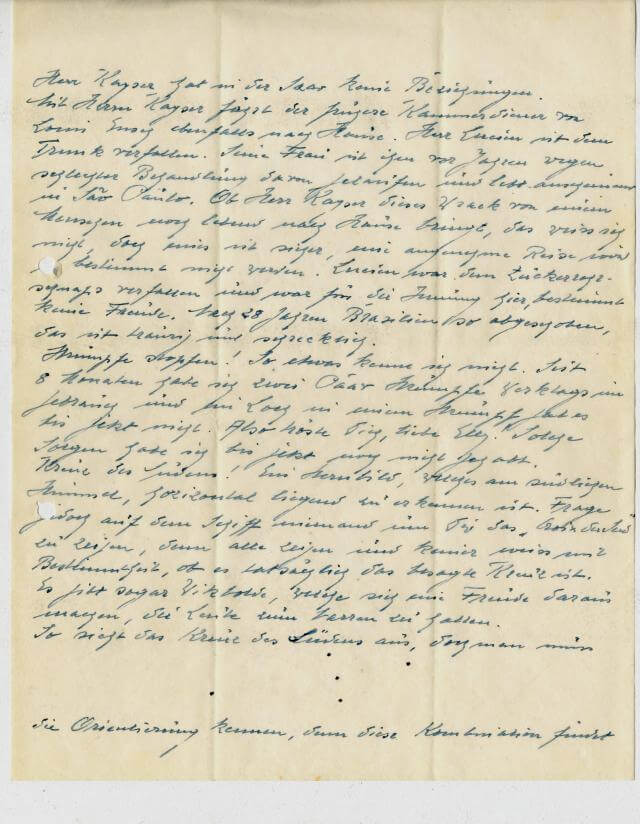 Herr Kayser hat in der Saar keine Beziehungen.
Mit Herrn Kayser fährt der jüngere Kammerdiener von
Louis Ensch ebenfalls nach Hause. Herr Lucien ist dem
Trunk verfallen. Seine Frau ist ihm vor Jahren wegen
schlechter Behandlung davon gelaufen und lebt
in São Paulo. Ob Herr Kayser dieses Wrack von einem
Menschen noch lebend nach Hause bringt, das weiss ich
nicht, doch eines ist sicher, eine angenehme Reise wird
es bestimmt nicht werden. Lucien war dem Zuckerrohr-
schnaps verfallen und war für die Innung hier, bestimmt
keine Freude. Nach 28 Jahren Brasilien so abgeschoben,
das ist traurig und schrecklich.
Strümpfe stopfen! So etwas kenne ich nicht. Seit
8 Monaten habe ich zwei Paar Strümpfe Werktags im
Gebrauch und ein Loch in einem Strumpf gab es
bis jetzt nicht. Also tröste Dich, liebe Elly. Solche
Sorgen habe ich bis jetzt noch nicht gehabt.
Kreuz des Südens! Ein Sternbild, welches am südlichen
Himmel, horizontal liegend zu erkennen ist. Frage
jedoch auf dem Schiff niemand um Dir das „Croix du Sud"
zu zeigen, denn alle zeigen und keiner weiss mit
Bestimmtheit, ob es tatsächlich das besagte Kreuz ist.
Es gibt sogar Witzbolde, welche sich eine Freude daraus
machen, die Leute zum Narren zu halten.
So sieht das Kreuz des Südens aus, doch man muss
die Orientierung kennen, denn diese Kombination findet